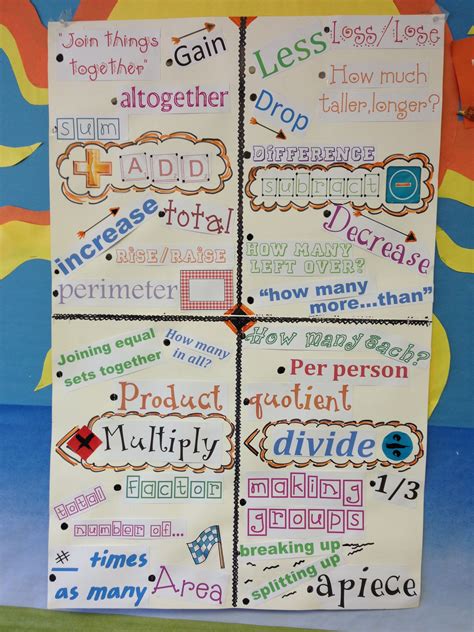 "Join things
together"
Gain
altogether
sum
ADD
increase
total
Rise/Raise
perimeter
Less
Loss/Lose
How much
taller,longer?
Drop
Difference
subract
Decrease
How many
left over?
"how many
more...than"
Joining equal
sets together
How many
in all?
Product
Multiply
total
factor
number of...
# times
as many
Area
How many each?
Per person
quotient
divide
making
groups
1/3
breaking up
splitting up
apiece